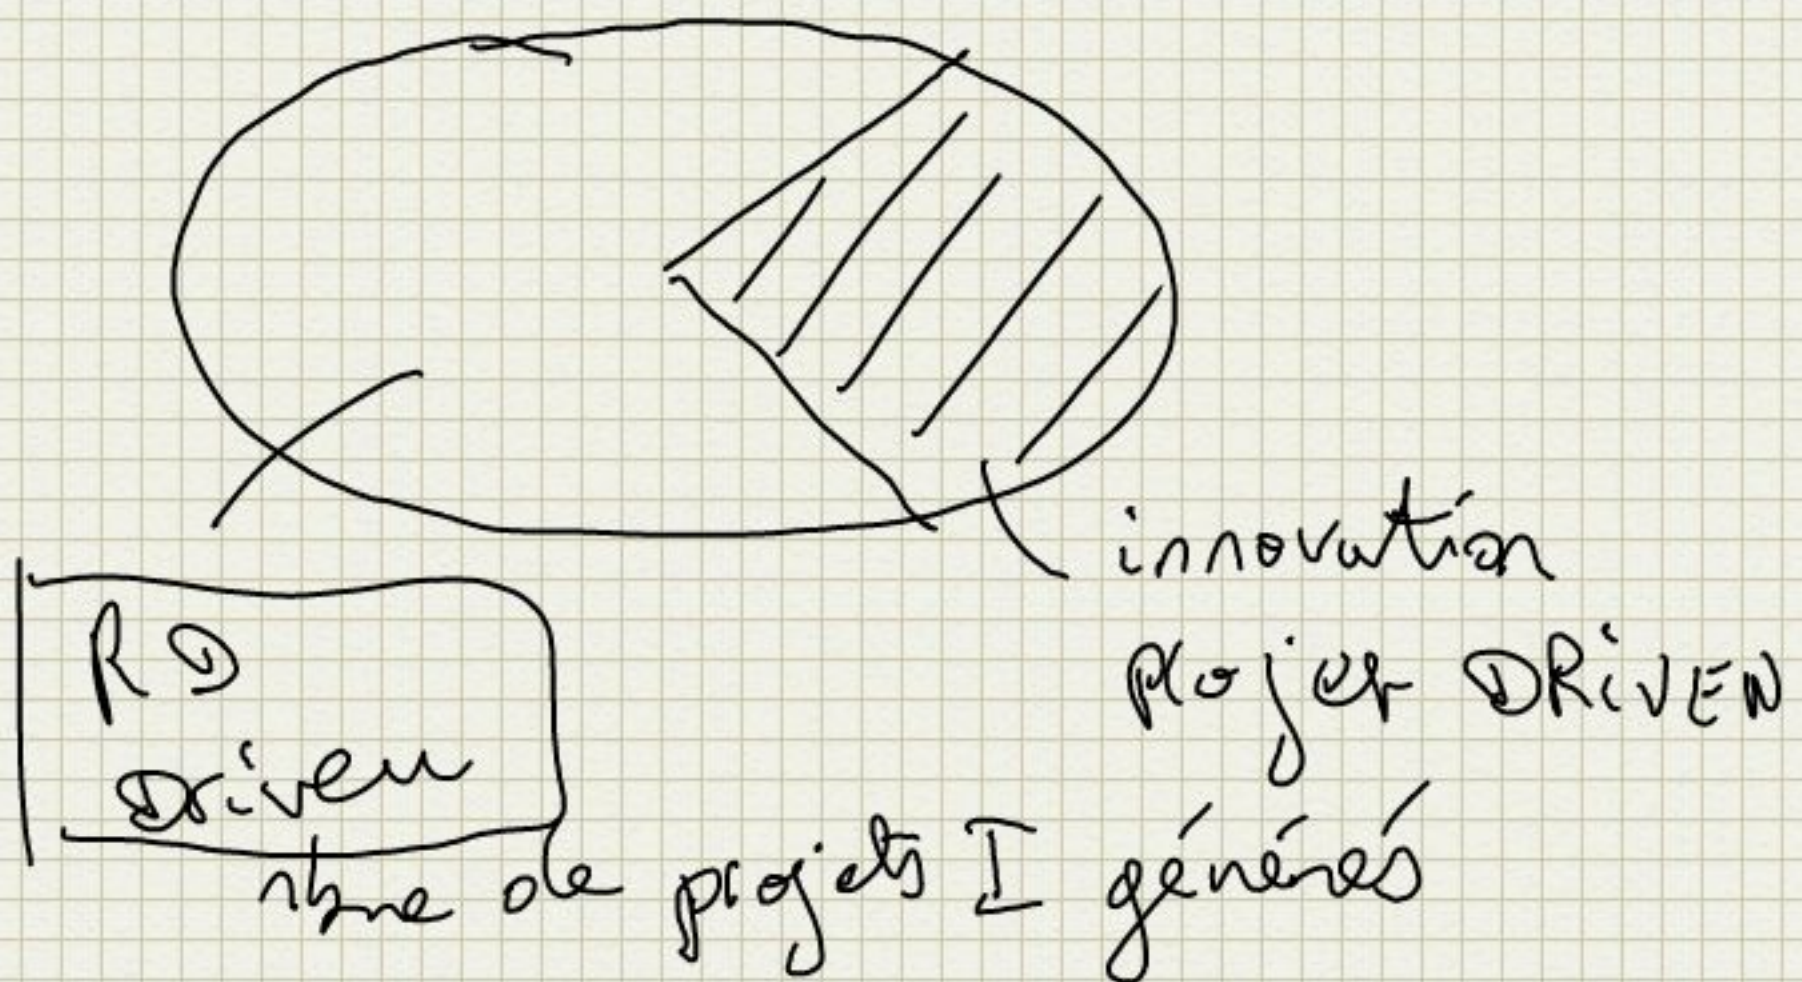 innovation
RD
projet DRiVEN
Driven
nbre de projets I générés